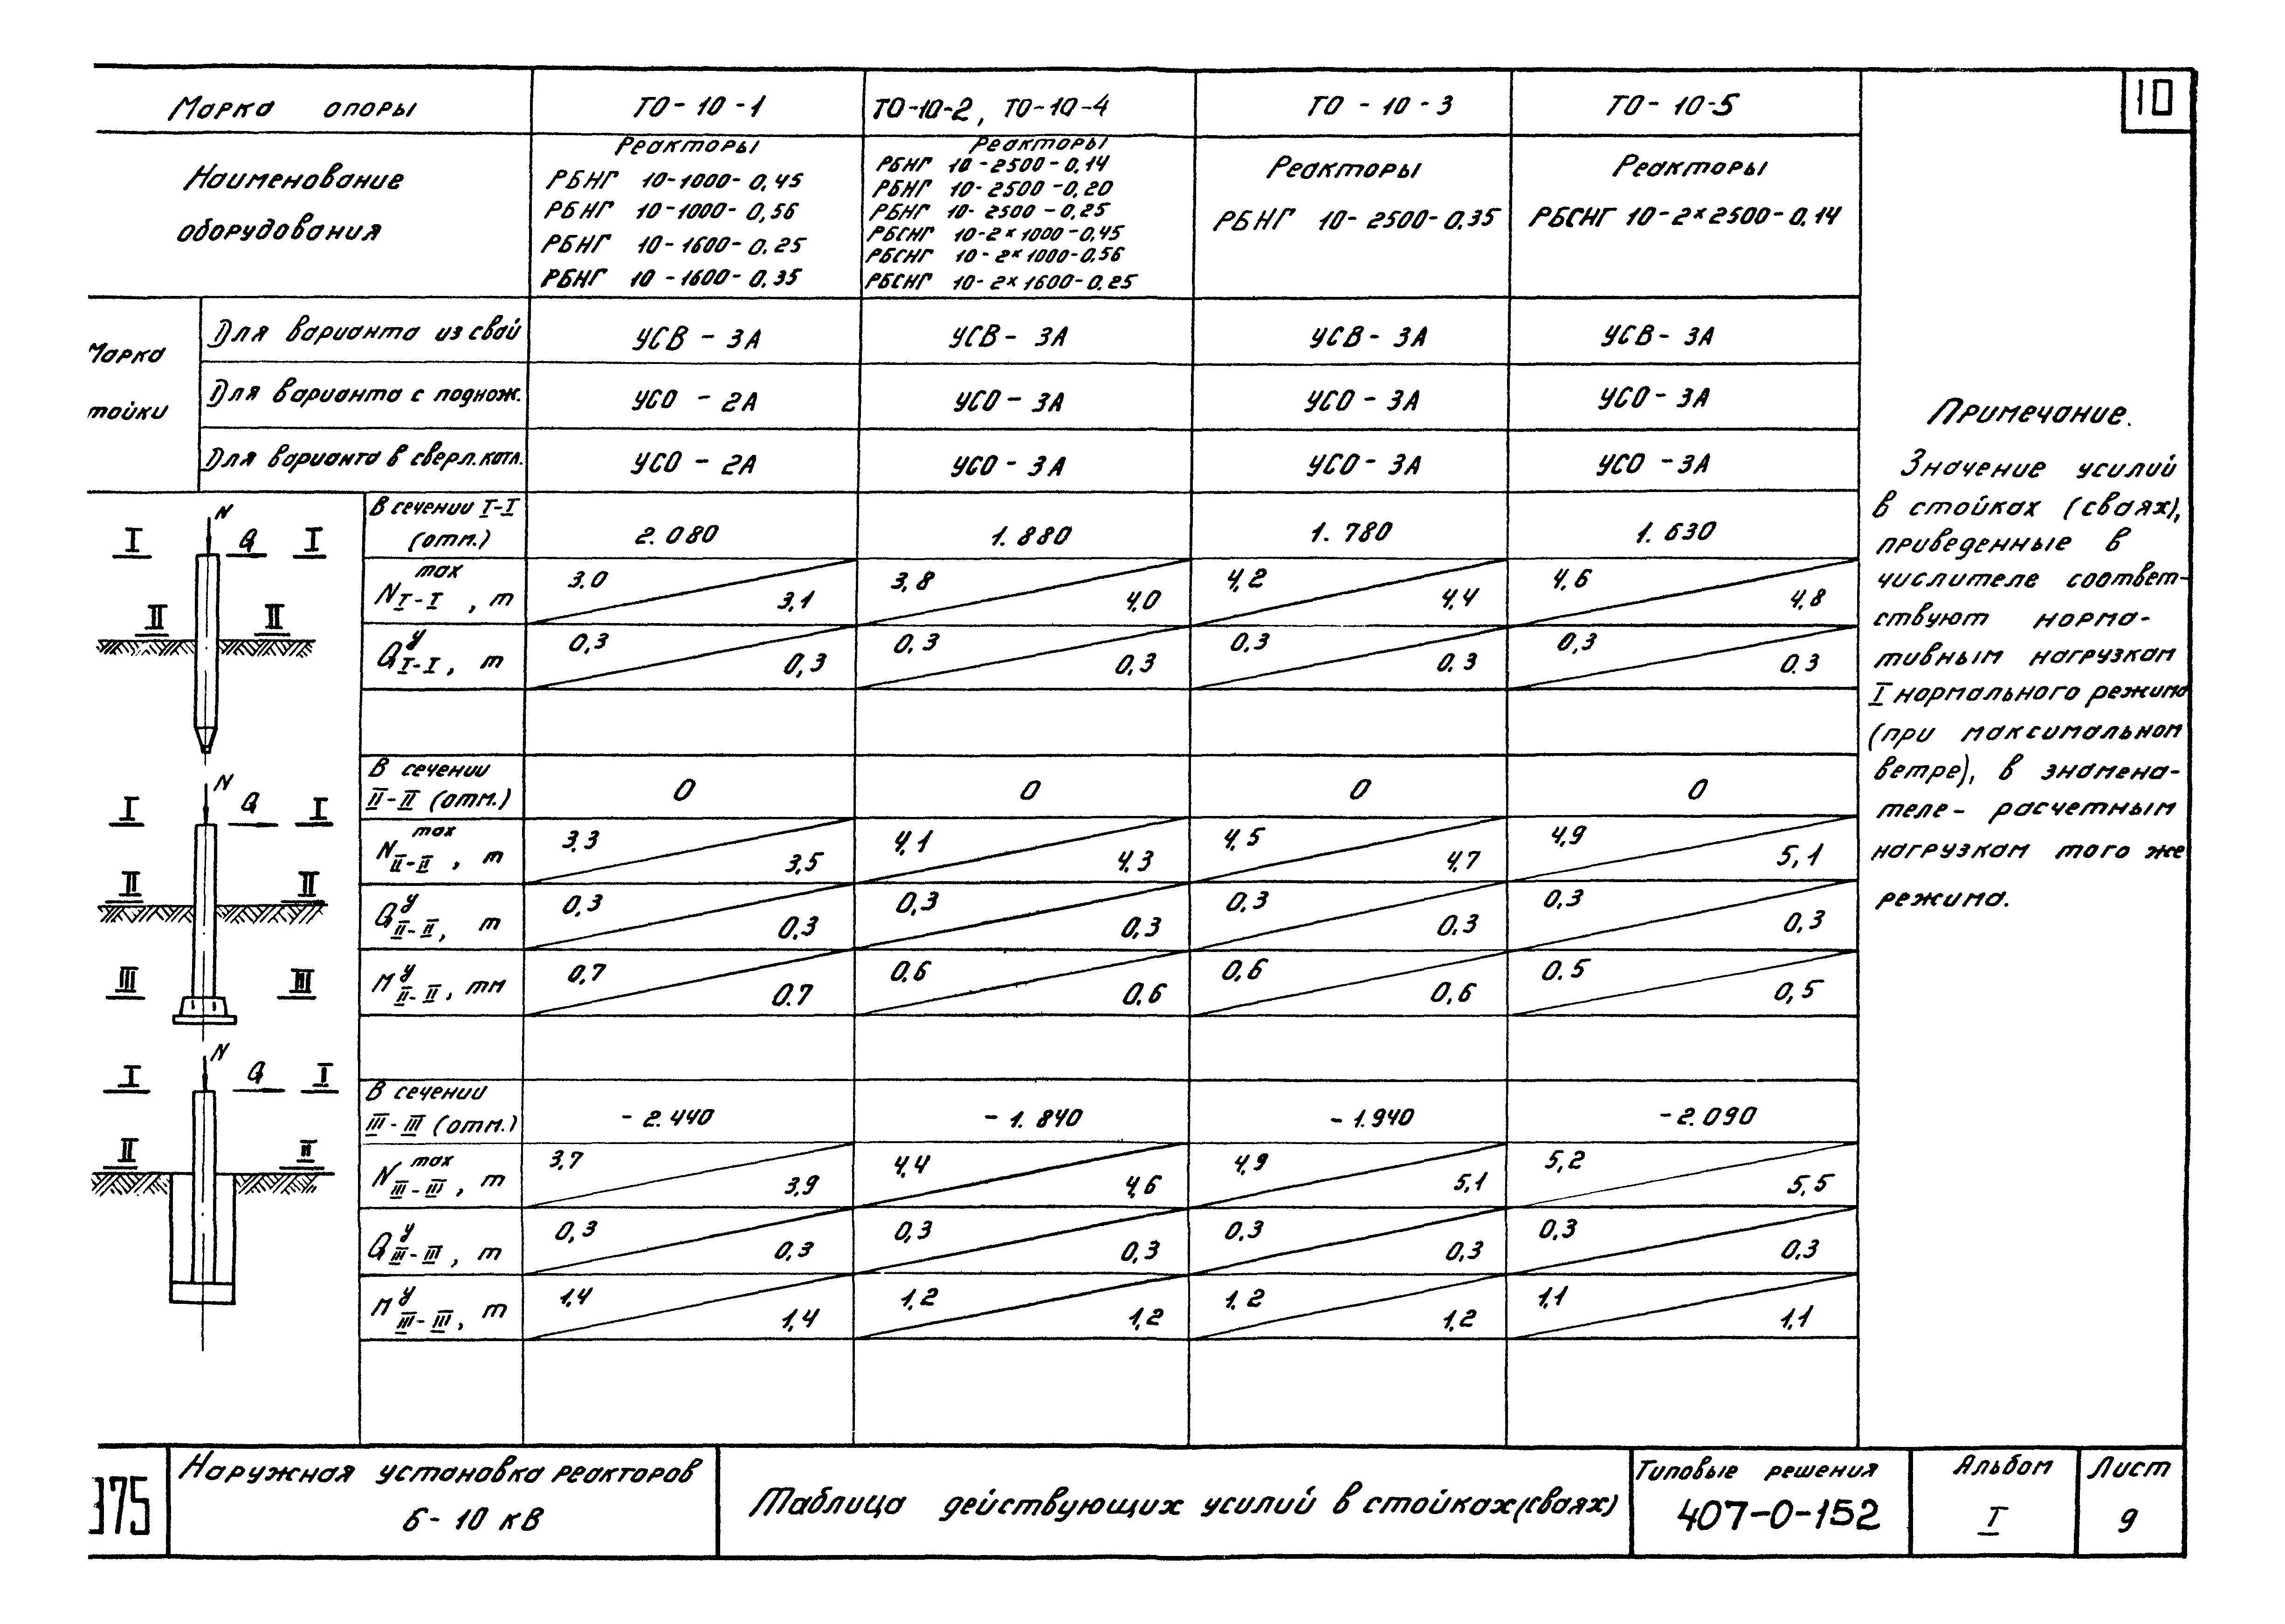 10
Марка опоры ТО-10-1 ТО-10-2, ТО-10-4 ТО-10-3 ТО-10-5
Наименование
оборудования
Реакторы
РБНГ 10-1000-0,45
РБНГ 10-1000-0,56
РБНГ 10-1600-0.25
РБНГ 10-1600-0.35
Реакторы
РБНГ 10-2500-0.14
РБНГ 10-2500-0,20
РБНГ 10-2500-0,25
РБСНГ 10-2×1000-0,45
РБСНГ 10-2×1000-0.56
РБСНГ 10-2×1600-0.25
Реакторы
РБНГ 10-2500-0.35
Реакторы
РБСНГ 10-2×2500-0.14
Марка
тойки
Для варианта из свай УСВ-3А УСВ-3А УСВ-3А УСВ-3А
Для варианта с поднож. УСО-2А УСО-3А УСО-3А УСО-3А
Для варианта в сверл.котл. УСО-2А УСО-3А УСО-3А УСО-3А
В сечении I-I
(отм.) 2.080 1.880 1.780 1.630
N max I-I, т 3.0 3,1 3,8 4,0 4,2 4,4 4,6 4,8
Q у I-I, т 0,3 0,3 0,3 0,3 0,3 0.3 0,3 0.3
В сечении
II-II (отм.) 0 0 0 0
N max II-II, т 3.3 3,5 4,1 4,3 4,5 4,7 4,9 5,1
Q у II-II, т 0,3 0.3 0,3 0,3 0,3 0.3 0.3 0,3
М у II-II, тм 0,7 0.7 0.6 0.6 0,6 0,6 0.5 0,5
В сечении
III-III (отм.) -2.440 -1.840 -1.940 -2.090
N max III-III, т 3,7 3,9 4,4 4,6 4,9 5,1 5,2 5,5
Q у III-III, т 0,3 0,3 0,3 0,3 0.3 0,3 0.3 0.3
М у III-III, т 1,4 1,4 1,2 1,2 1.2 1,2 1,1 1,1
N
I Q I
II II
N
I Q I
II II
III III
N
I Q I
II II
Примечание.
Значение усилий
в стойках (сваях),
приведенные в
числителе соответ-
ствуют норма-
тивным нагрузкам
I нормального режима
(при максимальном
ветре), в знамена-
теле- расчетным
нагрузкам того же
режима.
375
Наружная установка реакторов
6-10 кВ
Таблица действующих усилий в стойках(сваях)
Типовые решения
407-0-152
Альбом
I
Лист
9